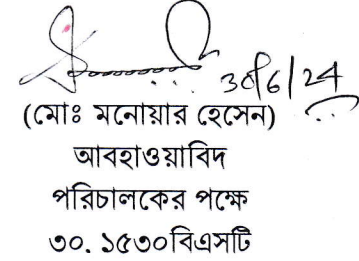 30/6/24
(মোঃ মনোয়ার হেসেন)
আবহাওয়াবিদ
পরিচালকের পক্ষে
৩০. ১৫৩০বিএসটি